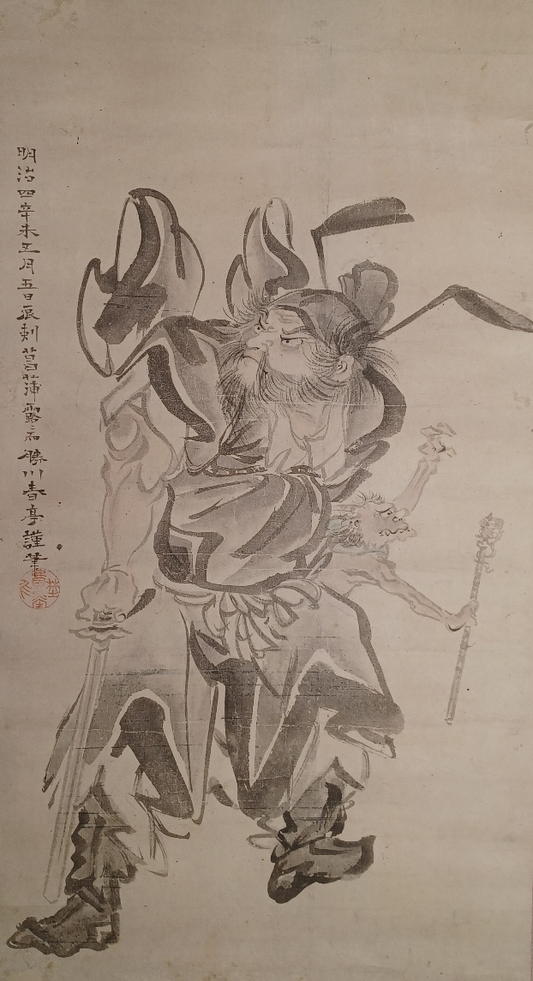 明治四辛未五月五日辰刻菖蒲露三石勝川春亭謹筆